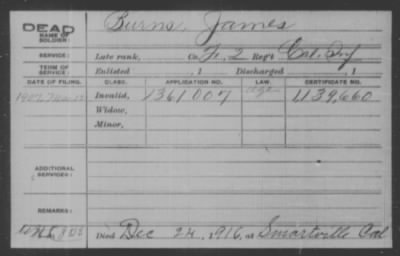 DEAD
NAME OF SOLDIER:
Burns, James
SERVICE:
Late rank, Co. F, 2 Reg't Cal. Inf
TERM OF SERVICE:
Enlisted , 1 Discharged , 1
DATE OF FILING. CLASS. APPLICATION NO. LAW. CERTIFICATE NO.
1907, Invalid, 1361007 age 1,139,660
Widow,
Minor,
ADDITIONAL SERVICES:
REMARKS:
Died Dec 24, 1916, at Smartville Cal